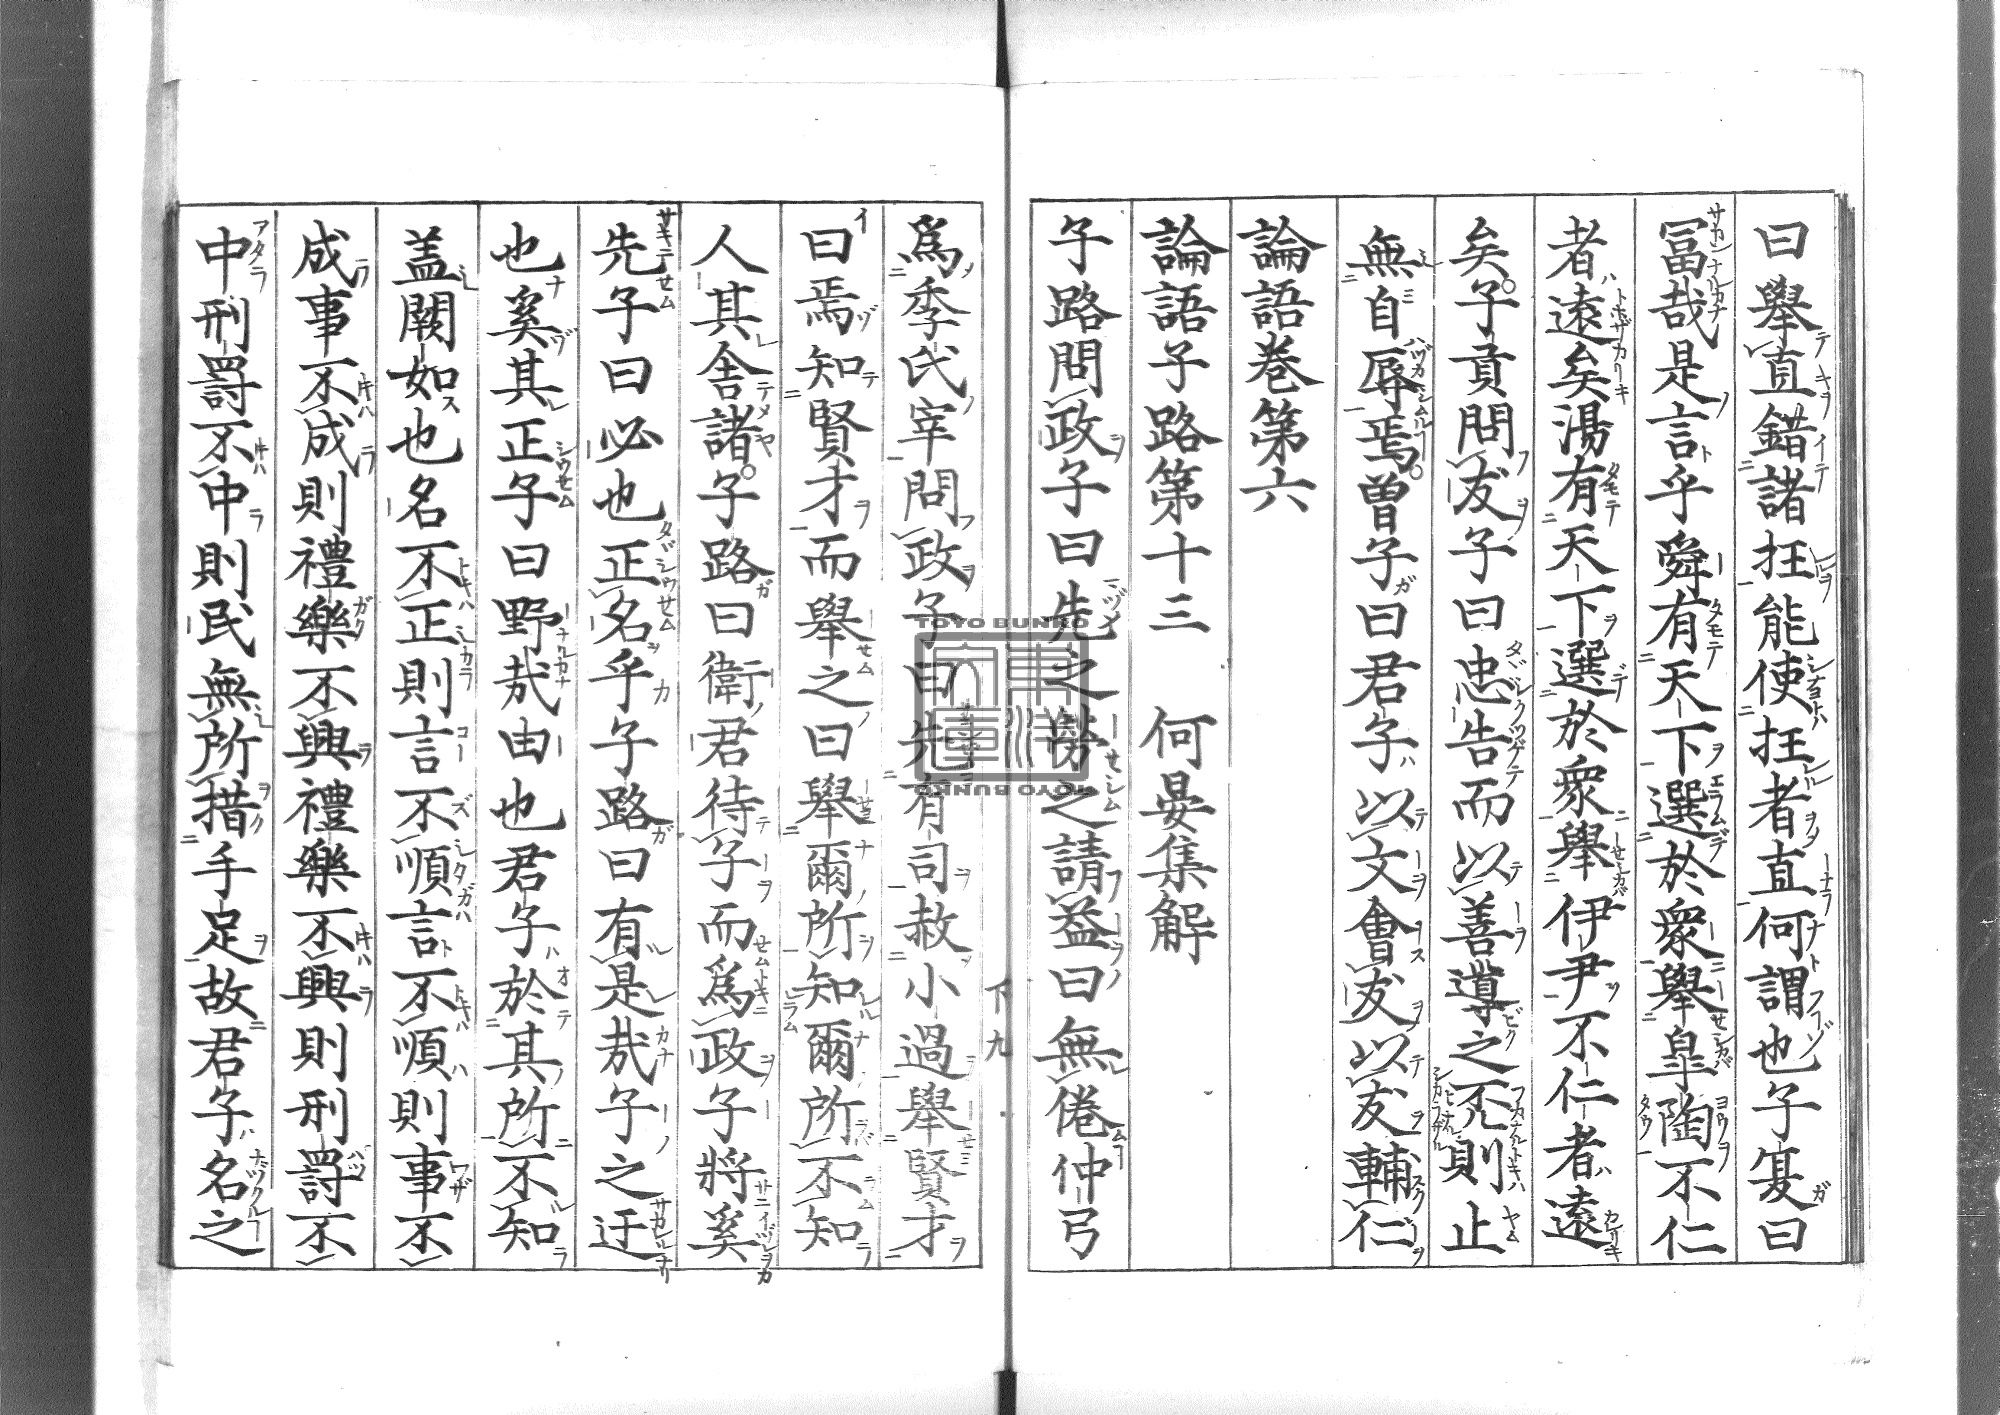 曰舉直錯諸抂能使抂者直何謂也子宴曰
冨哉是言乎舜有天下選於衆舉皐陶不仁
者遠矣湯有天下選於衆舉伊尹不仁者遠
矣子貢問友子曰忠告而以善導之否則止
無自辱焉曽子曰君子以文會友以友輔仁
論語巻第六
論語子路第十三 何晏集解
子路問政子曰先之勞之請益曰無倦仲弓
下九
爲季氏宰問政子曰先有司赦小過舉賢才
曰焉知賢才而舉之曰舉爾所知爾所不知
人其舎諸子路曰衛君待子而爲政子將奚
先子曰必也正名乎子路曰有是哉子之迂
也奚其正子曰野哉由也君子於其所不知
盖闕如也名不正則言不順言不順則事不
成事不成則禮樂不興禮樂不興則刑罸不
中刑罸不中則民無所措手足故君子名之
TOYO BUNKO
東洋文庫
TOYO BUNKO